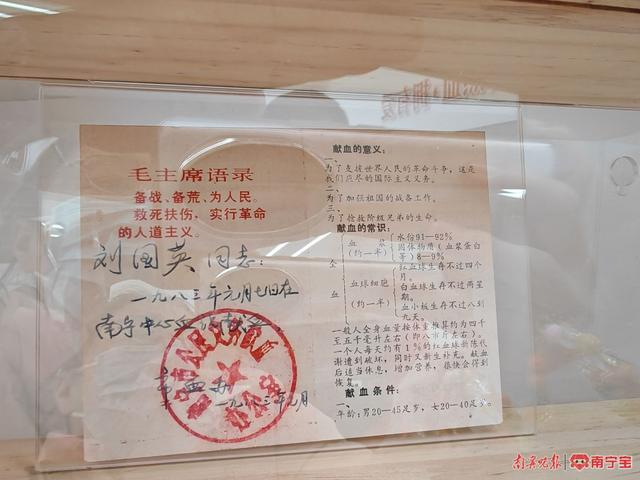 毛主席语录
备战、备荒、为人民。
救死扶伤，实行革命
的人道主义。
刘国英同志：
一九八三年元月七日在
南宁中心血站献血
一九八三年元月
献血的意义：
一、
为了支援世界人民的革命斗争，这是
我们应尽的国际主义义务。
二、
为了加强祖国的战备工作。
三、
为了抢救阶级兄弟的生命。
献血的常识：
全血
血浆（约一半）
水份91—92%
固体物质（血浆蛋白
等）8—9%
血球细胞（约一半）
红血球生存不过四个
月。
白血球生存不过两星
期。
血小板生存不过八到
九天。
一般人全身血量按体重推算约为四千
至五千毫升左右（即八市斤左右）。
一个人每天约有1%的红血球新陈代
谢遭到破坏，同时又新生补充。献血
后适当休息，增加营养，很快会得到
恢复。
献血条件：
一、
年龄：男20—45足岁，女20—40足岁。
南国晚报
南宁宝